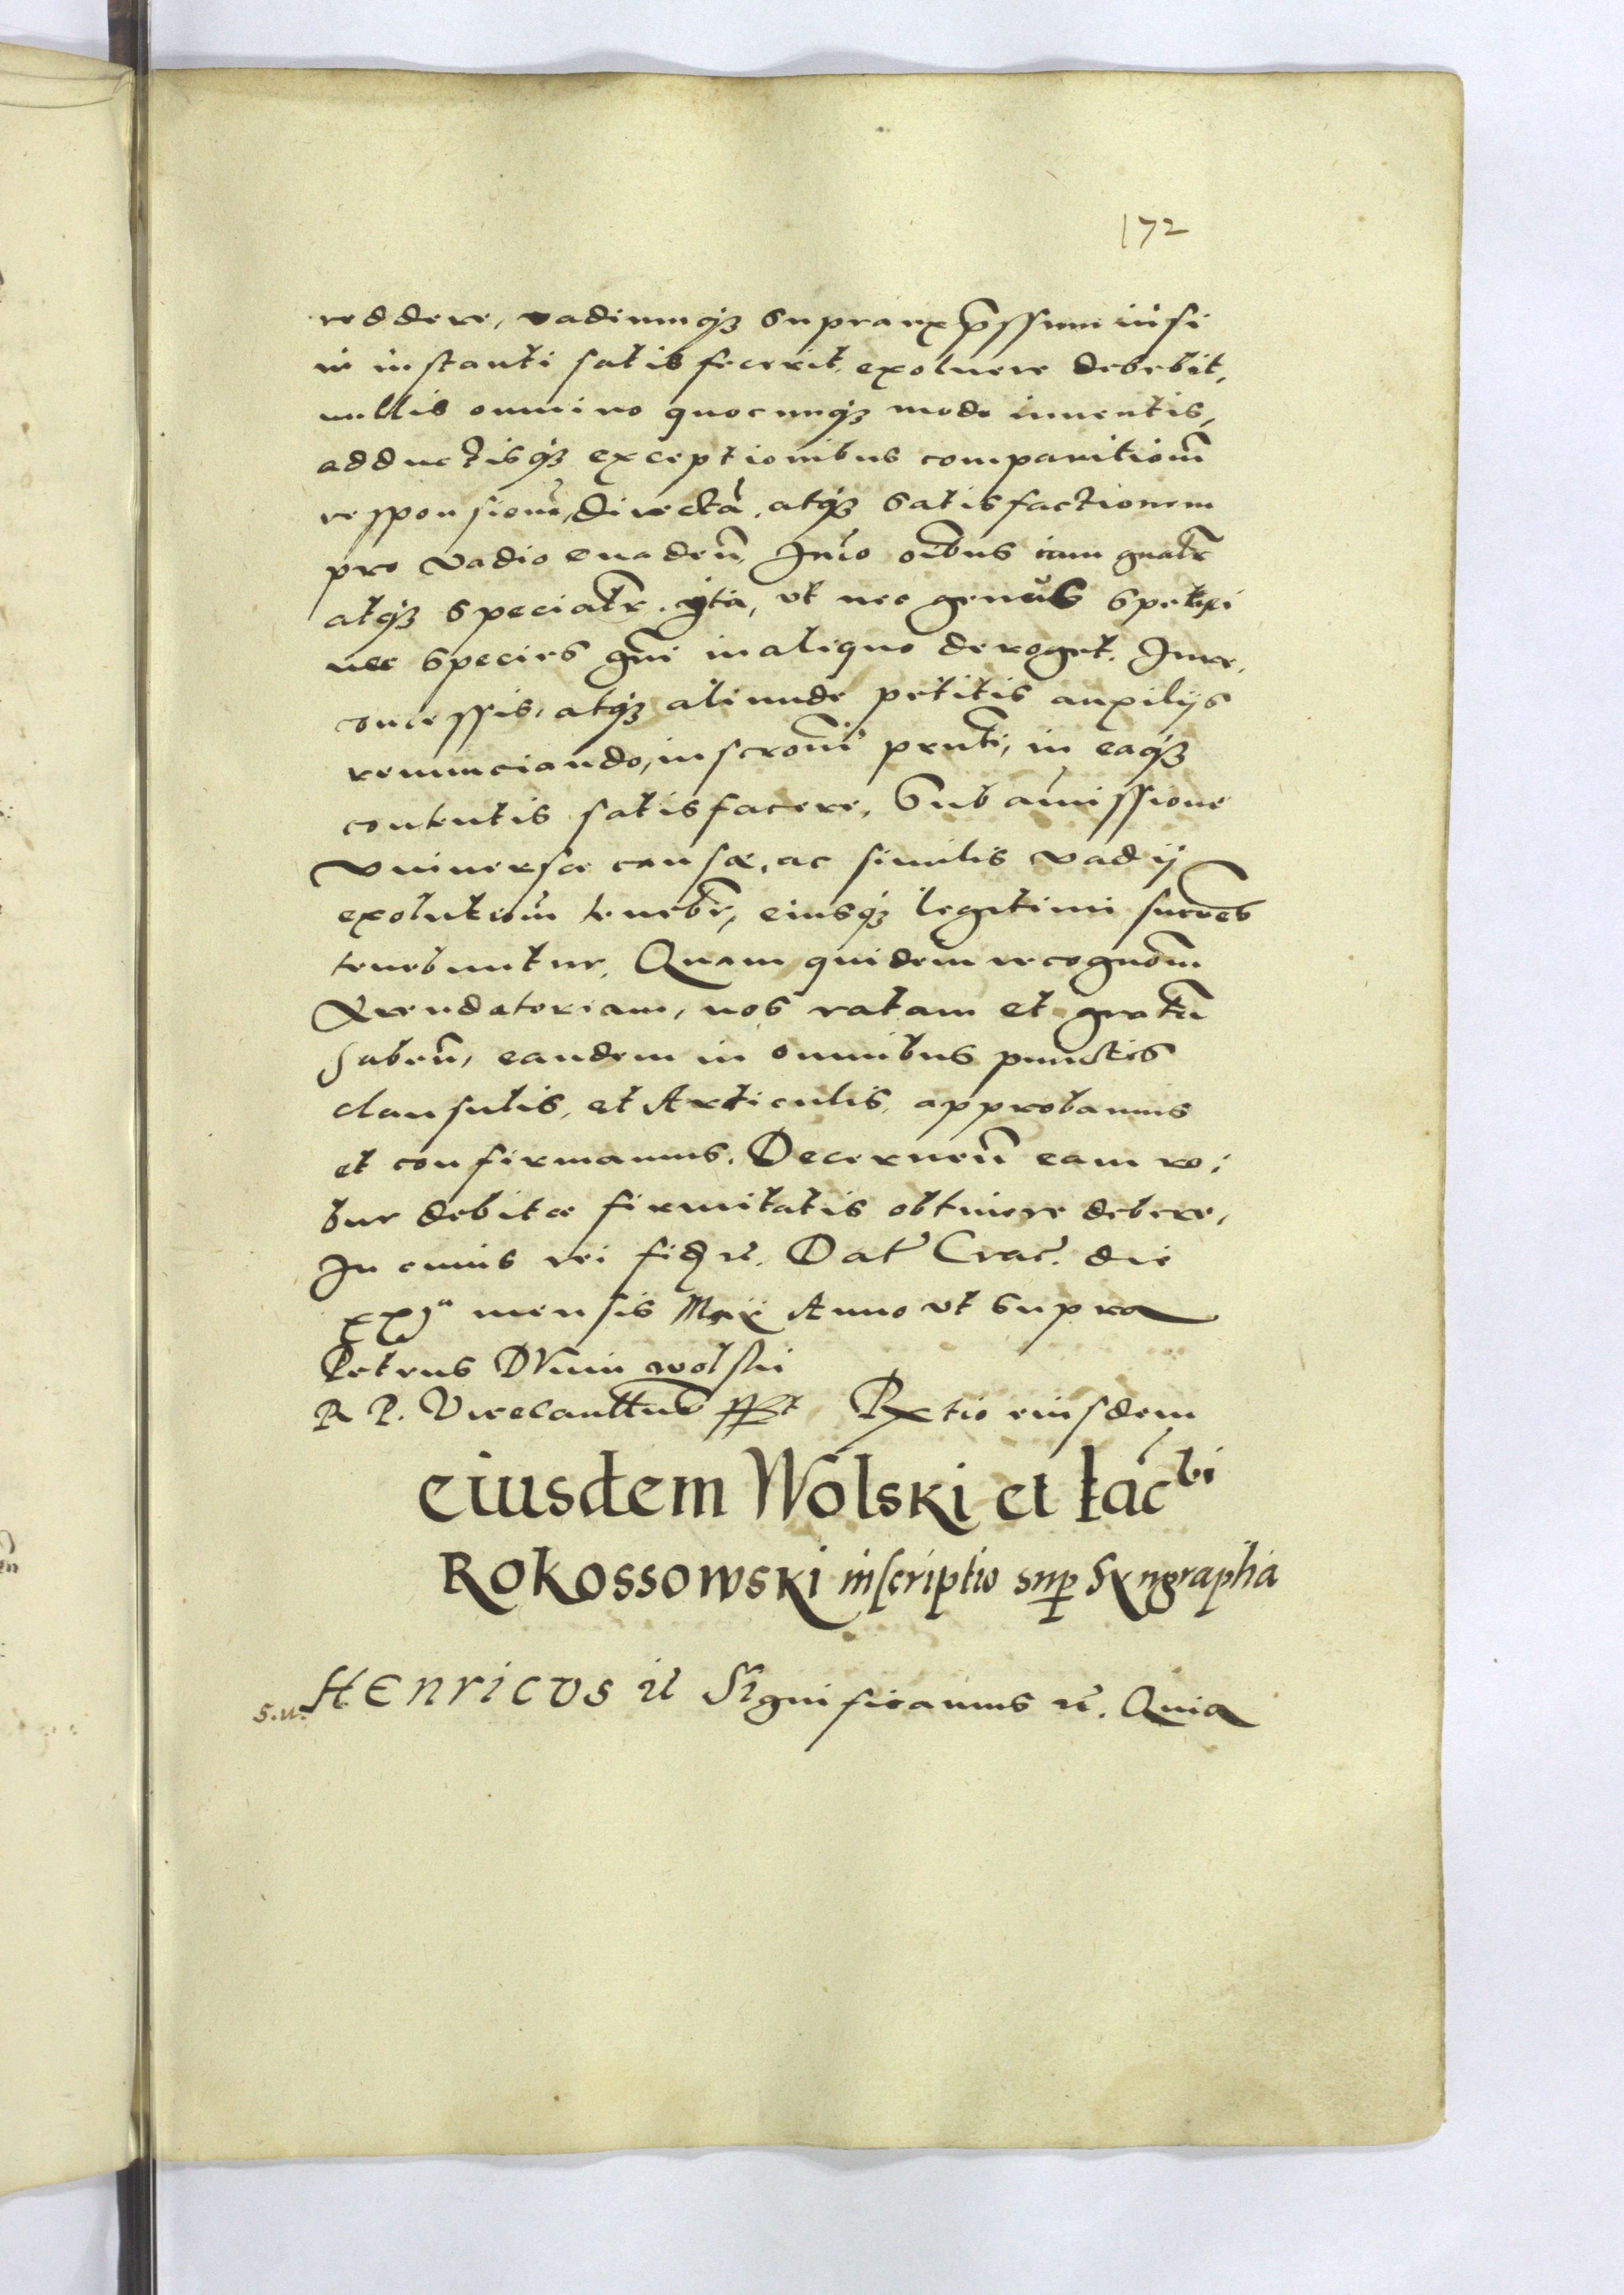 172
reddere, vadiumq3 supraexpssum nisi
in instanti satisfecerit, exoluere debebit,
nullis omnino quocunq3 modo inuentis,
adductisq3 exceptionibus comparitiom̃
responsionẽ, directã, atq3 satisfactionem
pro vadio euadeñ, Imo oĩbus iam gnalr̃
atq3 specialr̃. Ita, vt nec genus speciei
nec species gñi in aliquo deroget. Jure,
concessis, atq3 aliunde petitis auxilijs
renunciando, inscroñi pnti, in eaq3
contentis satisfacere, Sub amissione
vniuersæ causæ, ac similis vadij
exolutiom̃ tenebr̃, eiusq3 legitimi succres
tenebuntur. Quam quidem recognom̃
Arendatoriam, nos ratam et gratã
habeñ, eandem in omnibus punctis
clausulis, et Articulis, approbamus
et confirmamus. Decerneñ eam ro:
bur debitæ firmitatis obtinere debere,
In cuius rei fid etc̃. Dat̃ Crac̃. die
XXJa mensis Maij Anno vt supra
Petrus Dunin wolski
R P. Vicecancellarius sspt Rxtio eiusdem
eiusdem Wolski et Iacbi
Rokossowski inscriptio sup Syngrapha
s.u. Henricus etc̃ Significamus etc̃. Quia